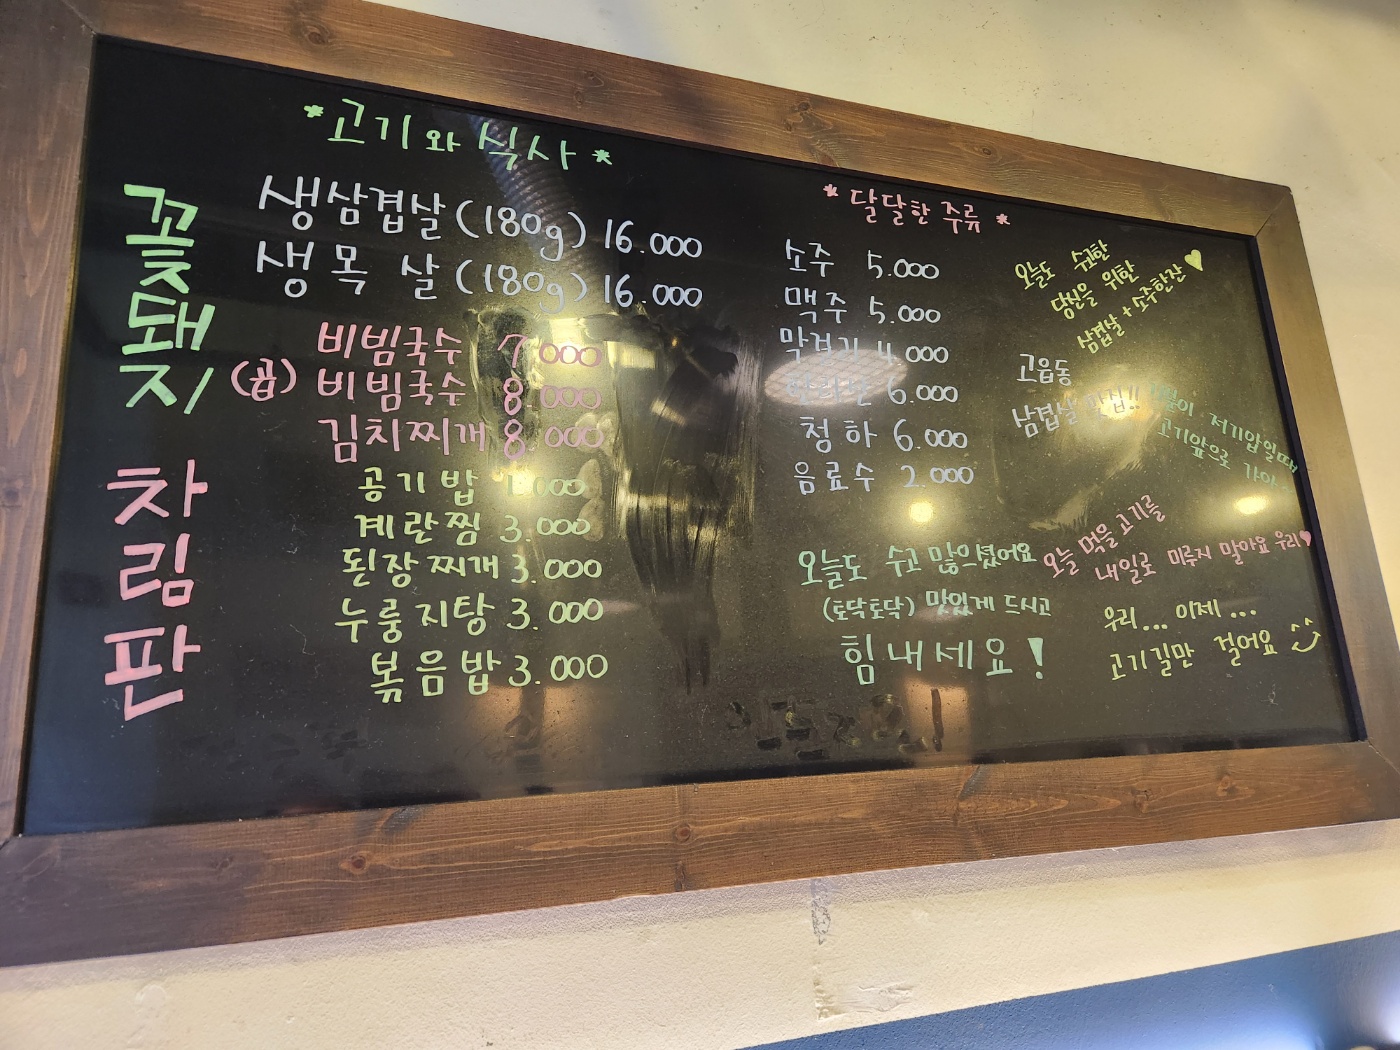 꽃돼지
차림판
*고기와 식사*
생삼겹살(180g) 16.000
생목살(180g) 16.000
비빔국수 7.000
(곱) 비빔국수 8.000
김치찌개 8.000
공기밥 1.000
계란찜 3.000
된장찌개 3.000
누룽지탕 3.000
볶음밥 3.000
*달달한 주류*
소주 5.000
맥주 5.000
막걸리 4.000
6.000
청하 6.000
음료수 2.000
오늘도 수고 많으셨어요
(토닥토닥) 맛있게 드시고
힘내세요!
오늘도 수고한
당신을 위한
삼겹살+소주한잔♥
고읍동
삼겹살 맛집!!
기분이 저기압일때
고기앞으로 가라..
오늘 먹을 고기를
내일로 미루지 말아요 우리♥
우리... 이제...
고기길만 걸어요